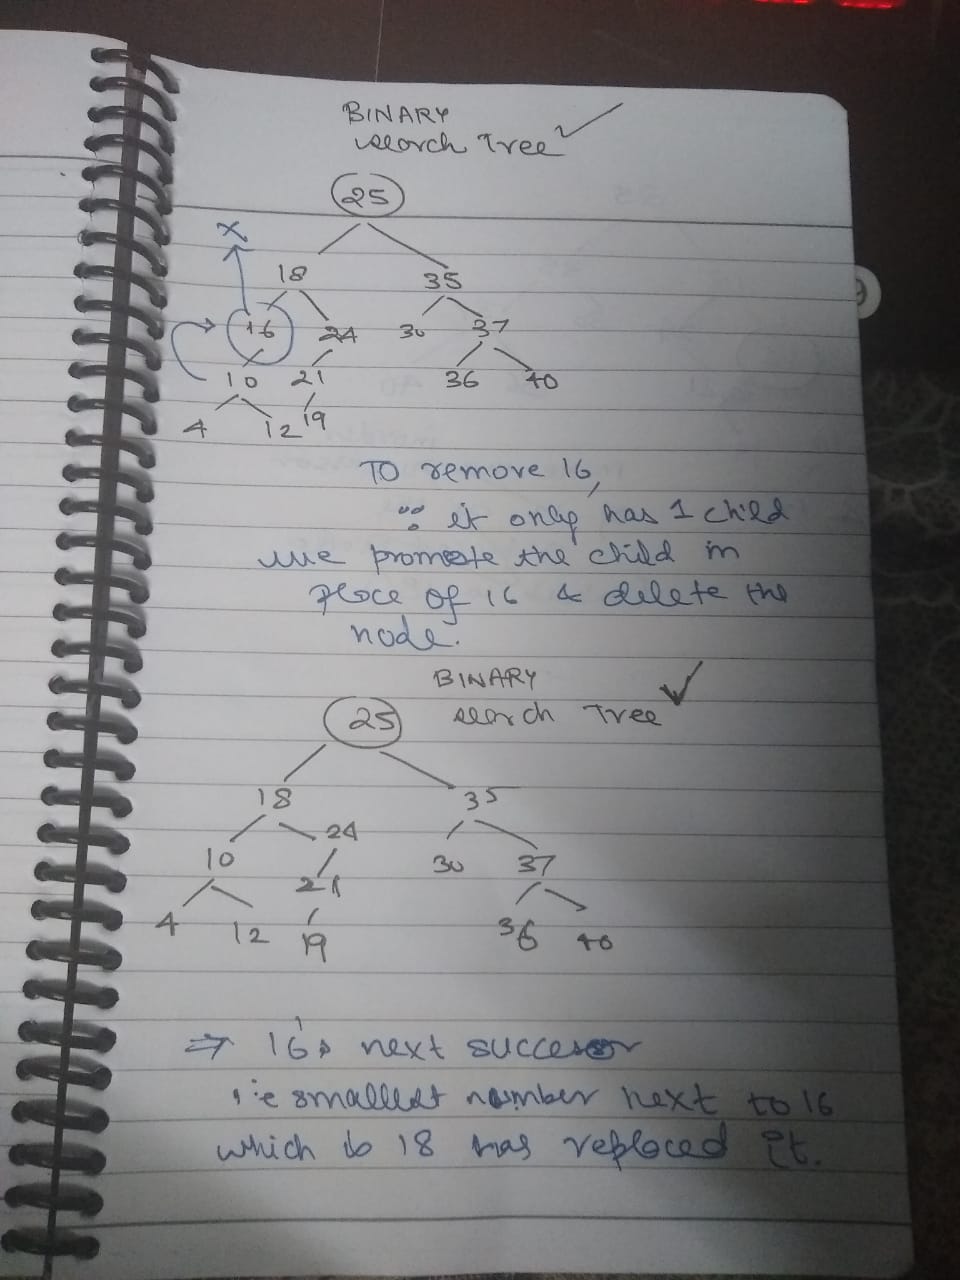 BINARY
search Tree
25
X
18 35
16 24 30 37
10 21 36 40
4 12 19
TO remove 16,
∵ it only has 1 child
we promote the child in
place of 16 & delete the
node.
BINARY
search Tree
25
18 35
24
10 30 37
21
4 12 19 36 40
⇒ 16's next succesor
i.e smallest number next to 16
which is 18 has replaced it.